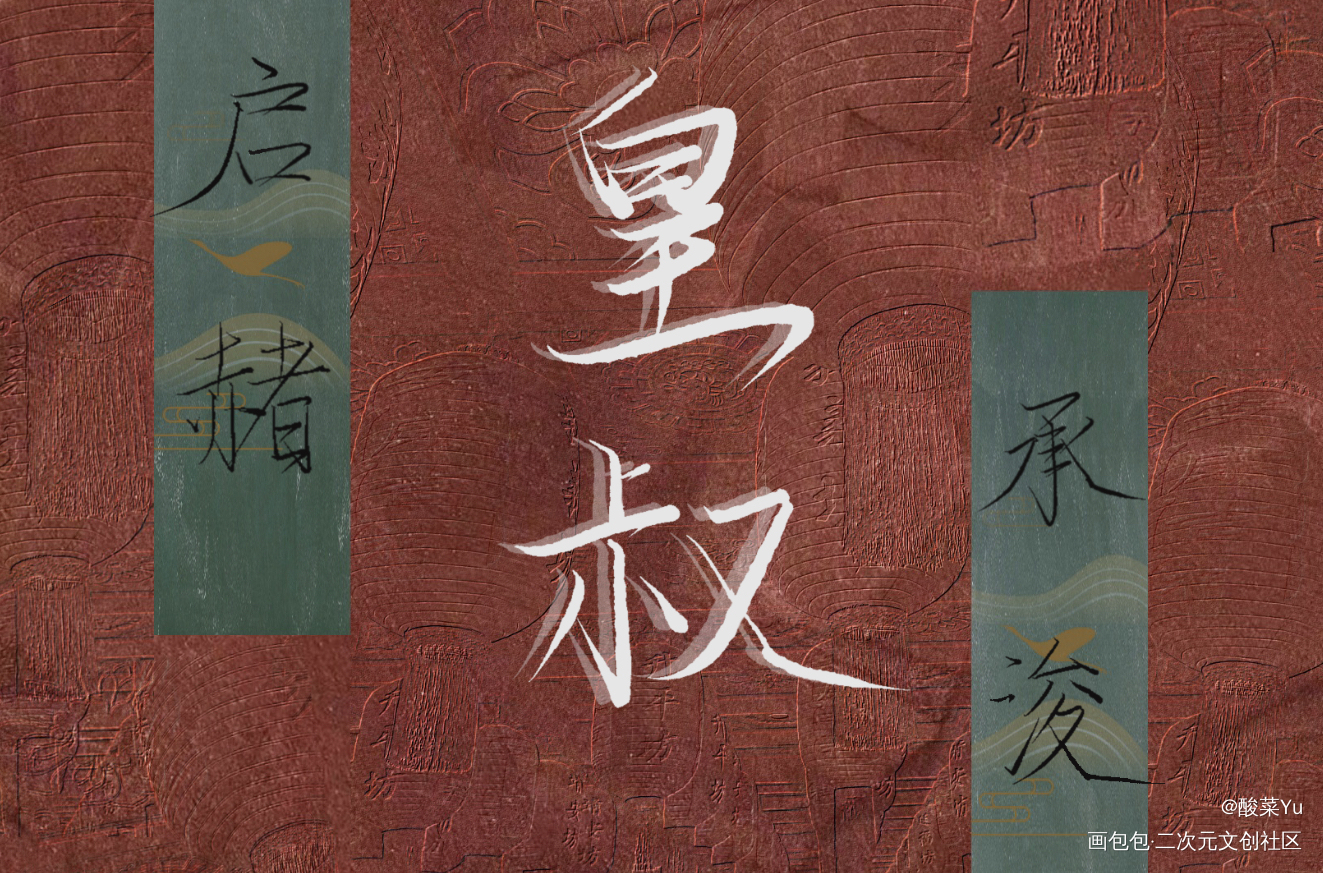 启赭
皇叔
坊
承浚
@酸菜Yu
画包包·二次元文创社区